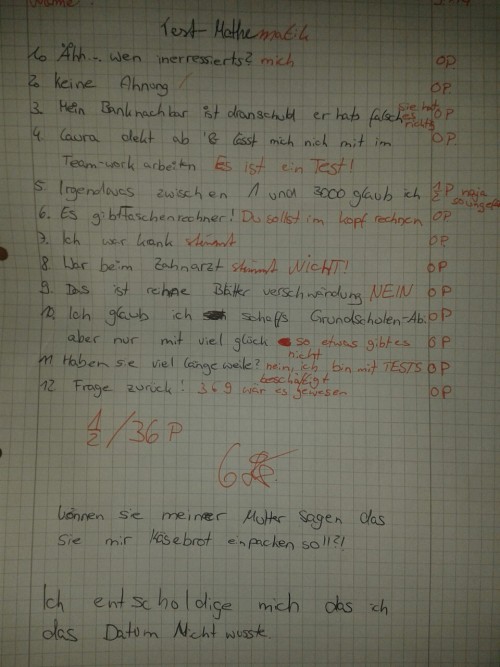 Name:
Test-Mathematik
1. Ähh... wen inerressierts? mich OP.
2. keine Ahnung OP.
3. Mein Banknachbar ist dranschuld er hats falsch sie hats es richtig OP
4. Laura dekt ab & lässt mich nich mit im OP.
Team-work arbeiten Es ist ein Test!
5. Irgendwas zwischen 1 und 3000 glaub ich 1/2 P naja so ungefähr
6. Es gibt Taschenrechner! Du sollst im Kopf rechnen OP
7. Ich war krank stimmt OP
8. War beim Zahnarzt stimmt NICHT! OP
9. Das ist reine Blätter verschwändung NEIN OP
10. Ich glaub ich schaffs Grundscholen-Abi OP
aber nur mit viel glück so etwas gibt es nicht OP
11. Haben sie viel langeweile? nein, ich bin mit TESTS beschäftigt OP
12. Frage zurück! 369 wär es gewesen OP
1/2 /36 P
6
können sie meiner Mutter sagen das
sie mir Käsebrot einpacken soll?!
Ich entscholdige mich das ich
das Datom Nicht wusste.